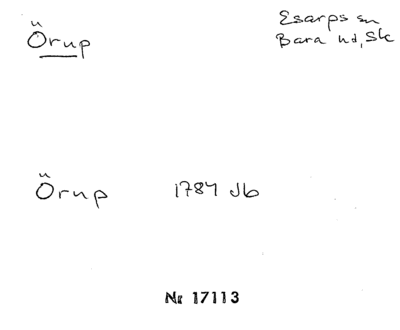 Örup
Esarps sn
Bara hd, Sk
Örup 1784 Jb
Nr 17113